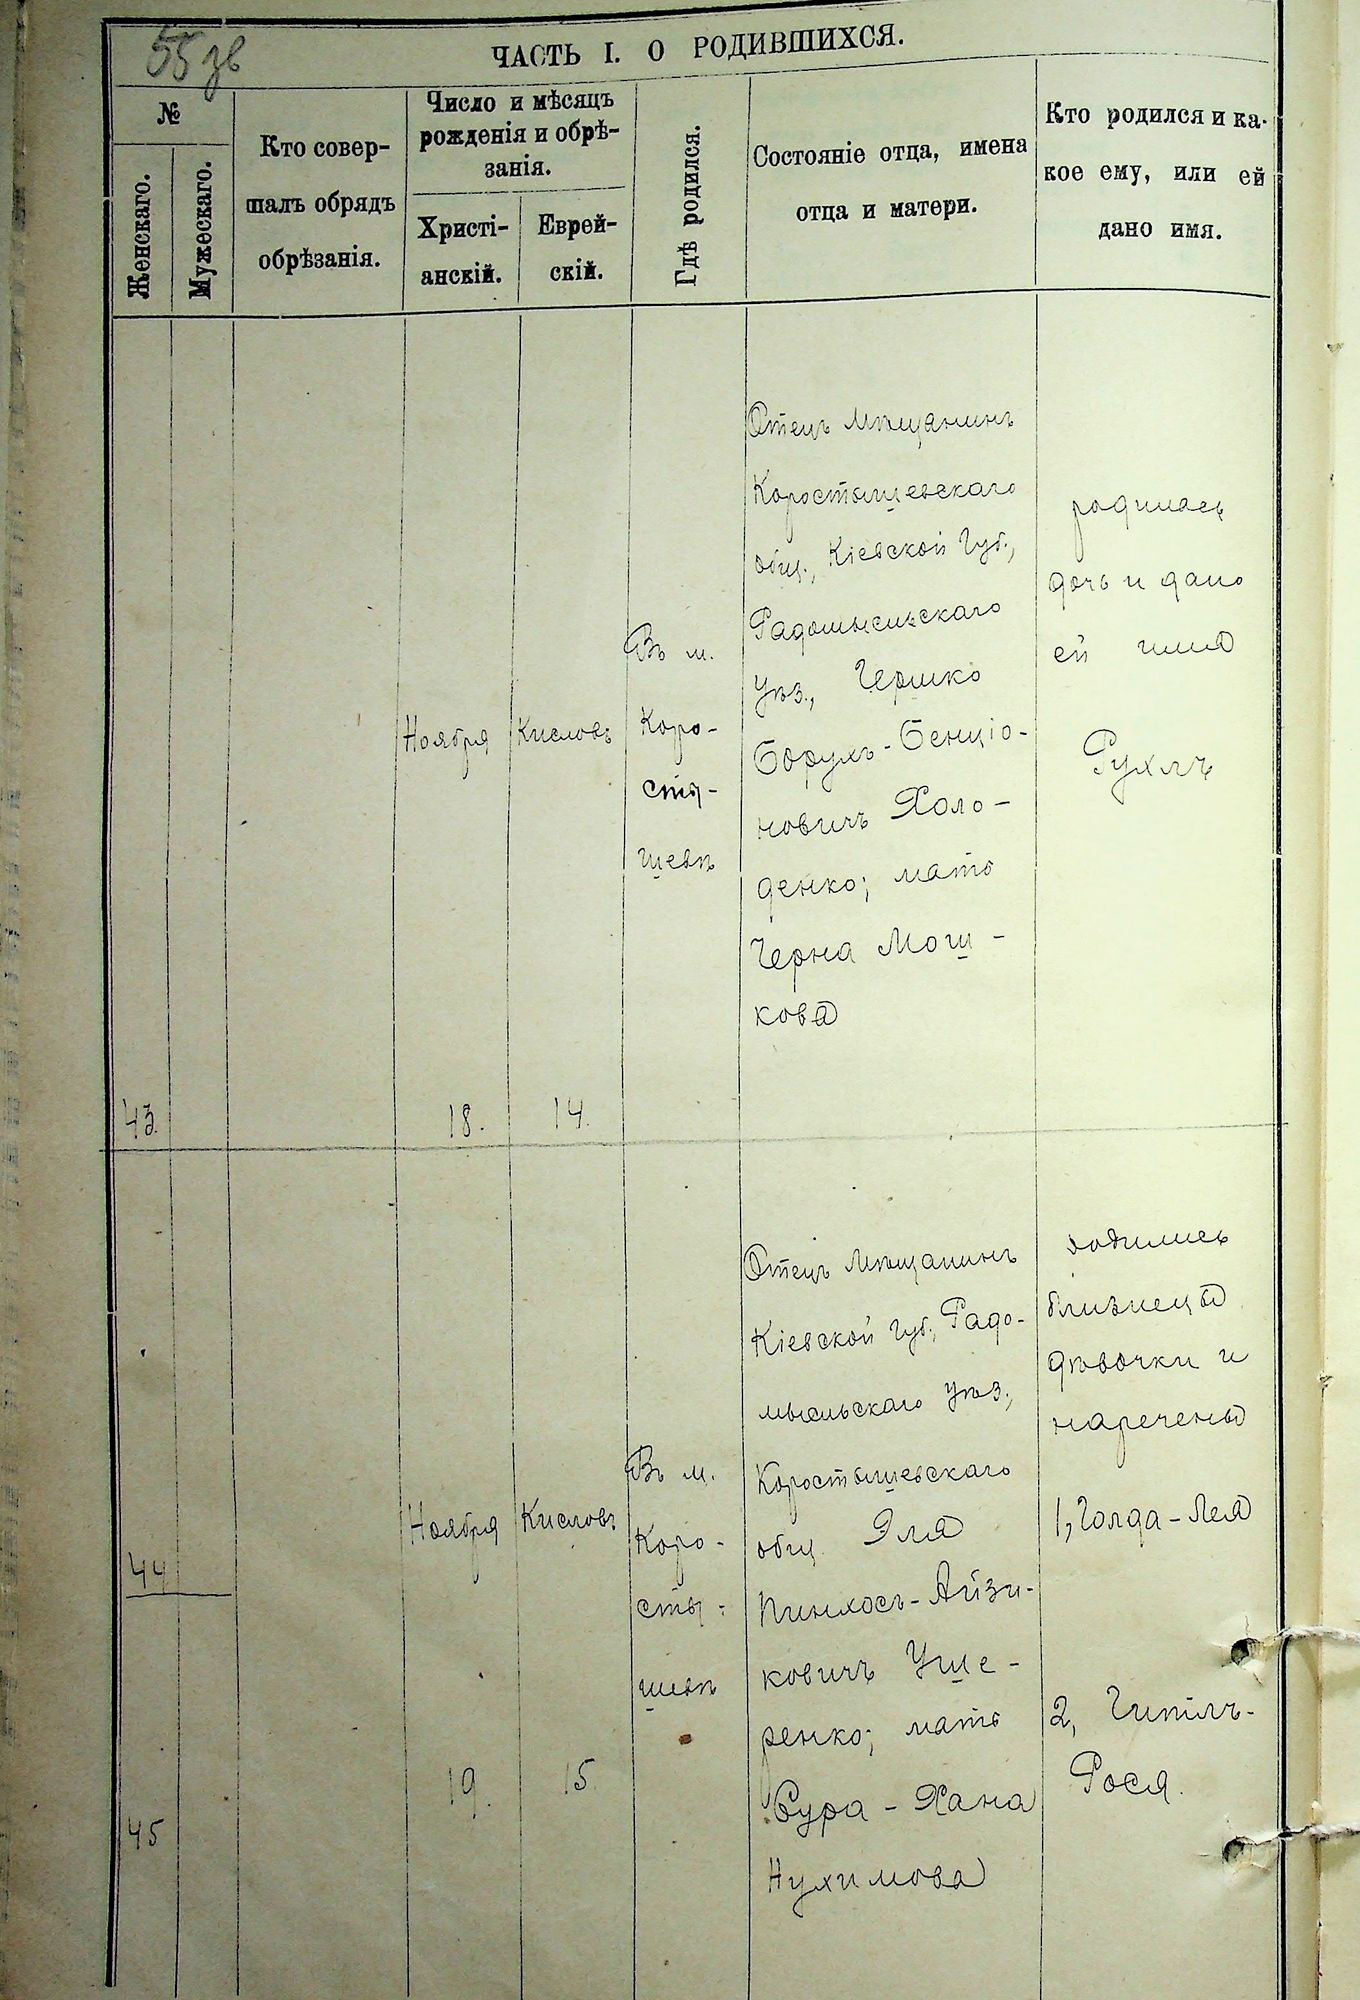 55 зв
ЧАСТЬ I. О РОДИВШИХСЯ.
№
Женскаго.
Мужескаго.
Кто совер-
шалъ обрядъ
обрѣзанія.
Число и мѣсяцъ
рожденія и обрѣ-
занія.
Христі-
анскій.
Еврей-
скій.
Гдѣ родился.
Состояніе отца, имена
отца и матери.
Кто родился и ка-
кое ему, или ей
дано имя.
43.
Ноября
18.
Кисловъ
14.
Въ м.
Коро-
сты-
шевѣ
Отецъ мѣщанинъ
Коростышевскаго
общ., Кіевской Губ.,
Радомысльскаго
уѣз., Гершко
Борухъ-Бенціо-
новичъ Холо-
денко; мать
Черна Мош-
кова
родилась
дочь и дано
ей имя
Рухль
44
45
Ноября
19.
Кисловъ
15
Въ м.
Коро-
сты-
шевѣ
Отецъ мѣщанинъ
Кіевской губ., Радо-
мысльскаго уѣз.,
Коростышевскаго
общ. Эля
Пинхосъ-Айзи-
ковичъ Уше-
ренко; мать
Сура-Хана
Нухимова
родились
близнецы
дѣвочки и
наречены
1, Голда-Лея
2, Гитль-
Рося.